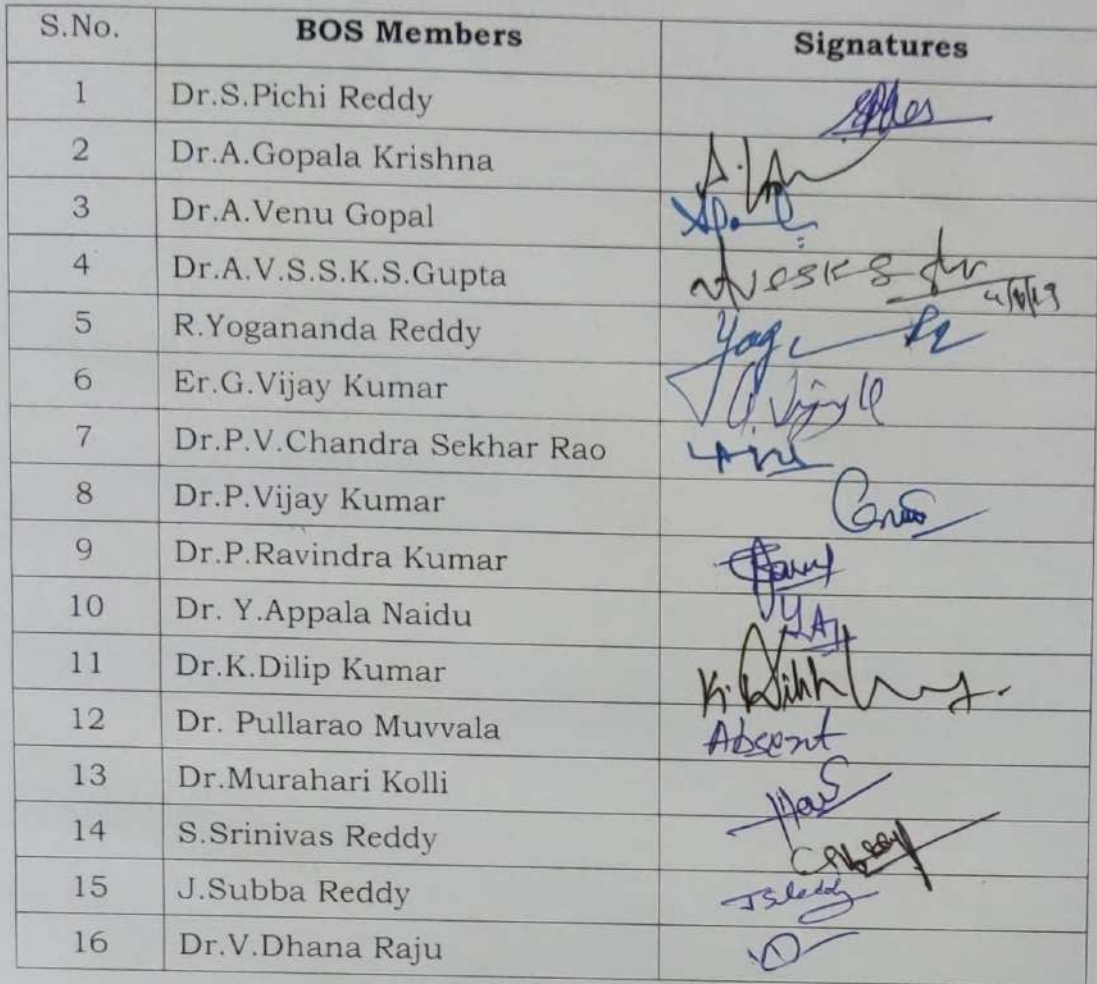 S.No. BOS Members Signatures
1 Dr.S.Pichi Reddy
2 Dr.A.Gopala Krishna
3 Dr.A.Venu Gopal
4 Dr.A.V.S.S.K.S.Gupta
5 R.Yogananda Reddy
6 Er.G.Vijay Kumar
7 Dr.P.V.Chandra Sekhar Rao
8 Dr.P.Vijay Kumar
9 Dr.P.Ravindra Kumar
10 Dr. Y.Appala Naidu
11 Dr.K.Dilip Kumar
12 Dr. Pullarao Muvvala Absent
13 Dr.Murahari Kolli
14 S.Srinivas Reddy
15 J.Subba Reddy
16 Dr.V.Dhana Raju